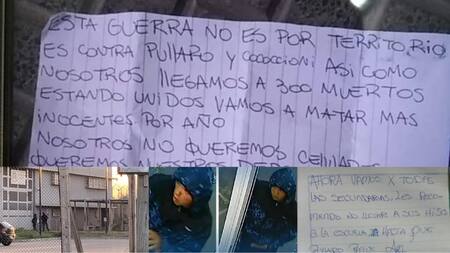 ESTA GUERRA NO ES POR TERRITORIO
ES CONTRA PULLARO Y COCOCCIONI ASI COMO
NOSOTROS LLEGAMOS A 300 MUERTOS
ESTANDO UNIDOS VAMOS A MATAR MAS
INOCENTES POR AÑO
NOSOTROS NO QUEREMOS CELULARES
QUEREMOS NUESTROS
AHORA VAMOS X TODAS
LAS SECUNDARIAS. LES RECO
MIENDO NO LLEVAR A SUS HIJOS
A LA ESCUELA HASTA QUE